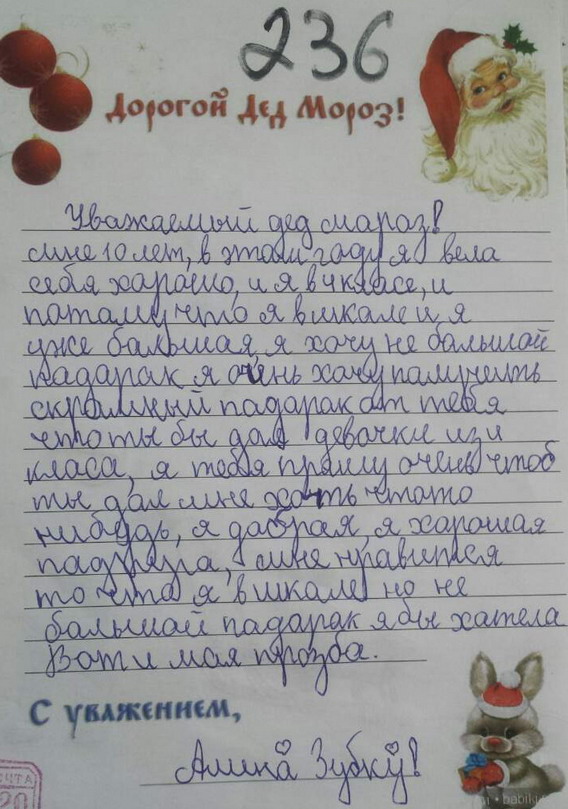 236
Дорогой Дед Мороз!
Уважаемый дед мараз!
мне 10 лет, в этом гаду я вела
себя харашо, и я в 4 класе, и
патаму что я в шкале и я
уже бальшая, я хочу не бальшой
падарак я очень хочу палучить
скромный падарак от тебя
что ты бы дал девачки из
класа, я тебя прашу очень чтоб
ты дал мне хоть чтото
нибудь, я добрая, я харошая
падруга, мне нравится
то что я в шкале но не
бальшой падарак я бы хатела
Вот и мая прозба.
С уважением,
Алина Зубку!
ЧТА
20
babiki